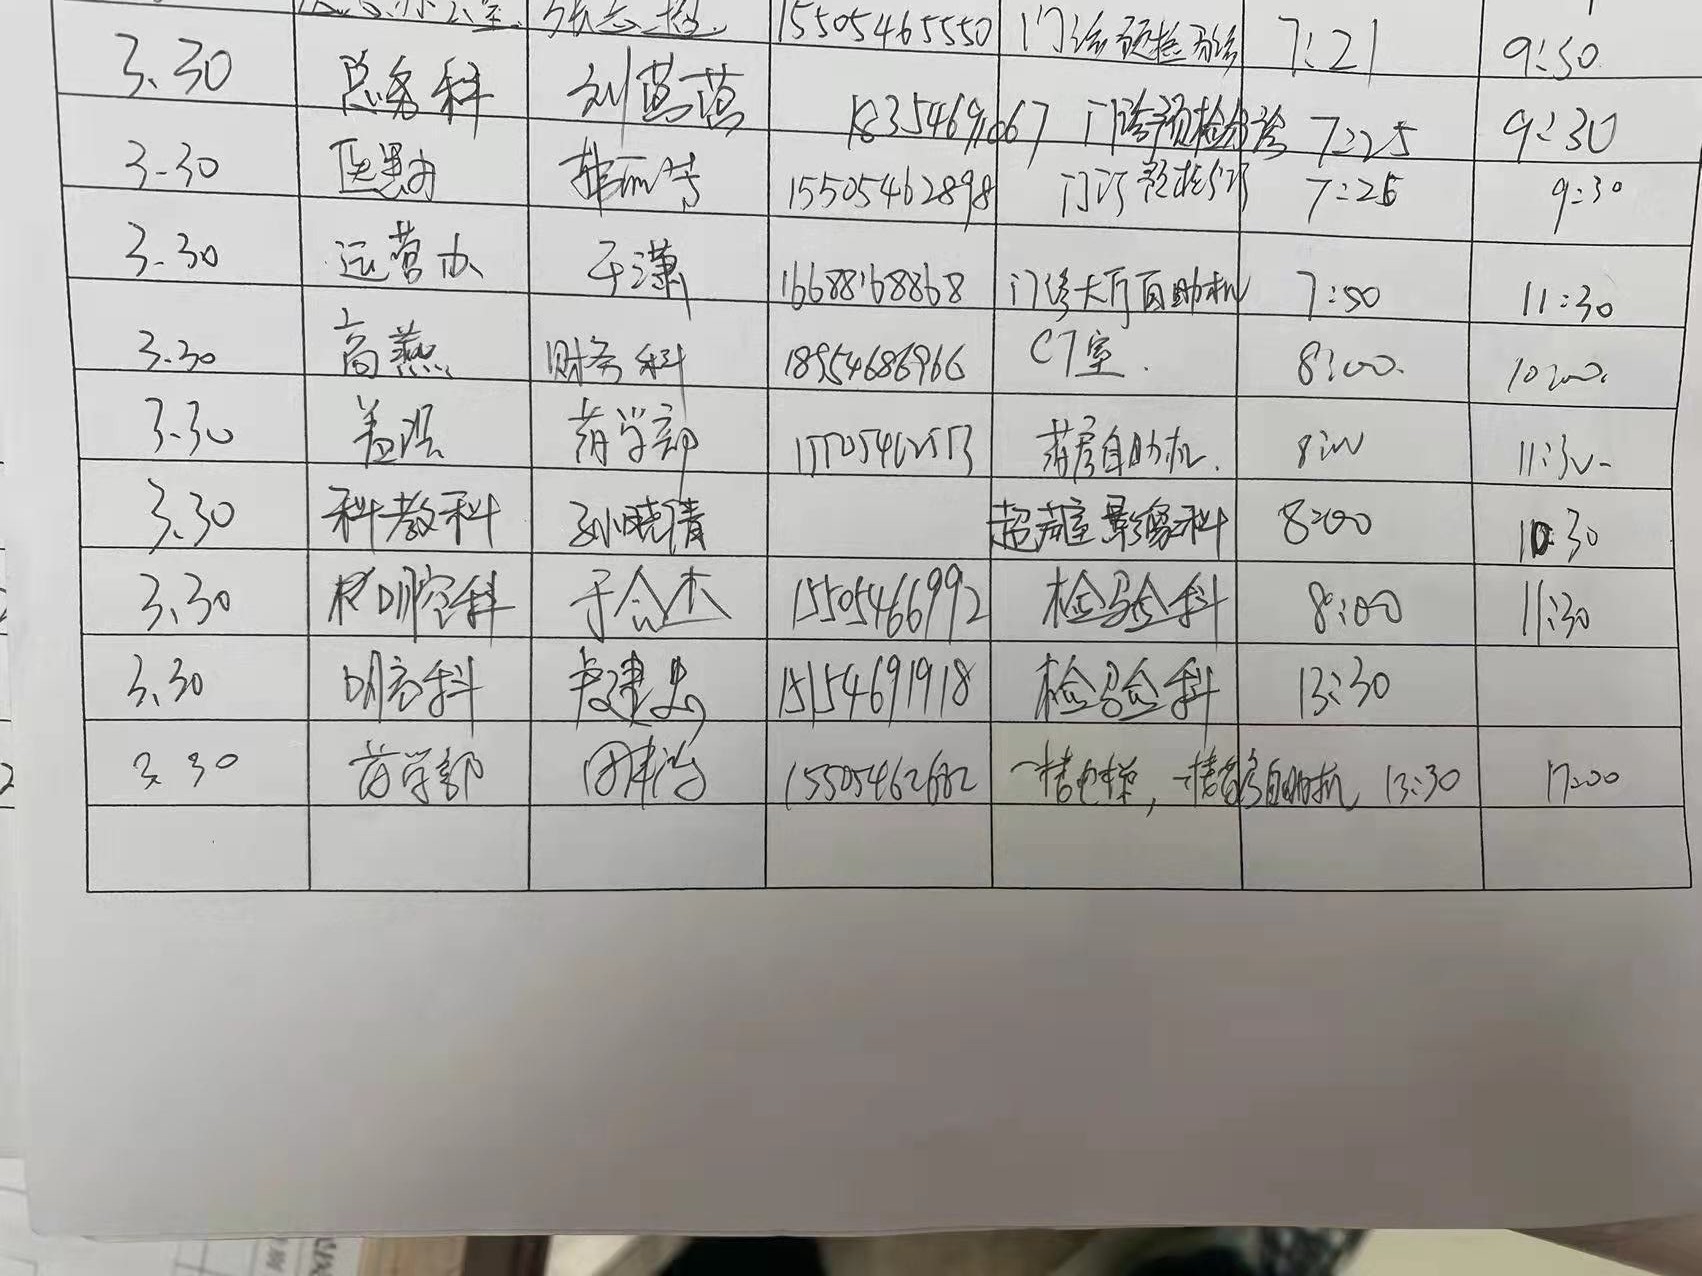 15505465550 门诊预检分诊 7:21 9:30
3.30 总务科 刘茑茑 18354691667 门诊预检分诊 7:25 9:30
3.30 15505462898 门诊预检分诊 7:25 9:30
3.30 运营办 于潇 16688168868 门诊大厅自助机 7:50 11:30
3.30 高燕 财务科 18954686966 CT室. 8:00. 10:00.
3.30 药学部 药房自助机. 8:00 11:30
3.30 科教科 孙晓倩 超声室 影像科 8:00 10:30
3.30 口腔科 于会杰 15505466992 检验科 8:00 11:30
3.30 15154691918 检验科 13:30
3.30 药学部 15505462682 一楼电梯,一楼药房自助机 13:30 17:00